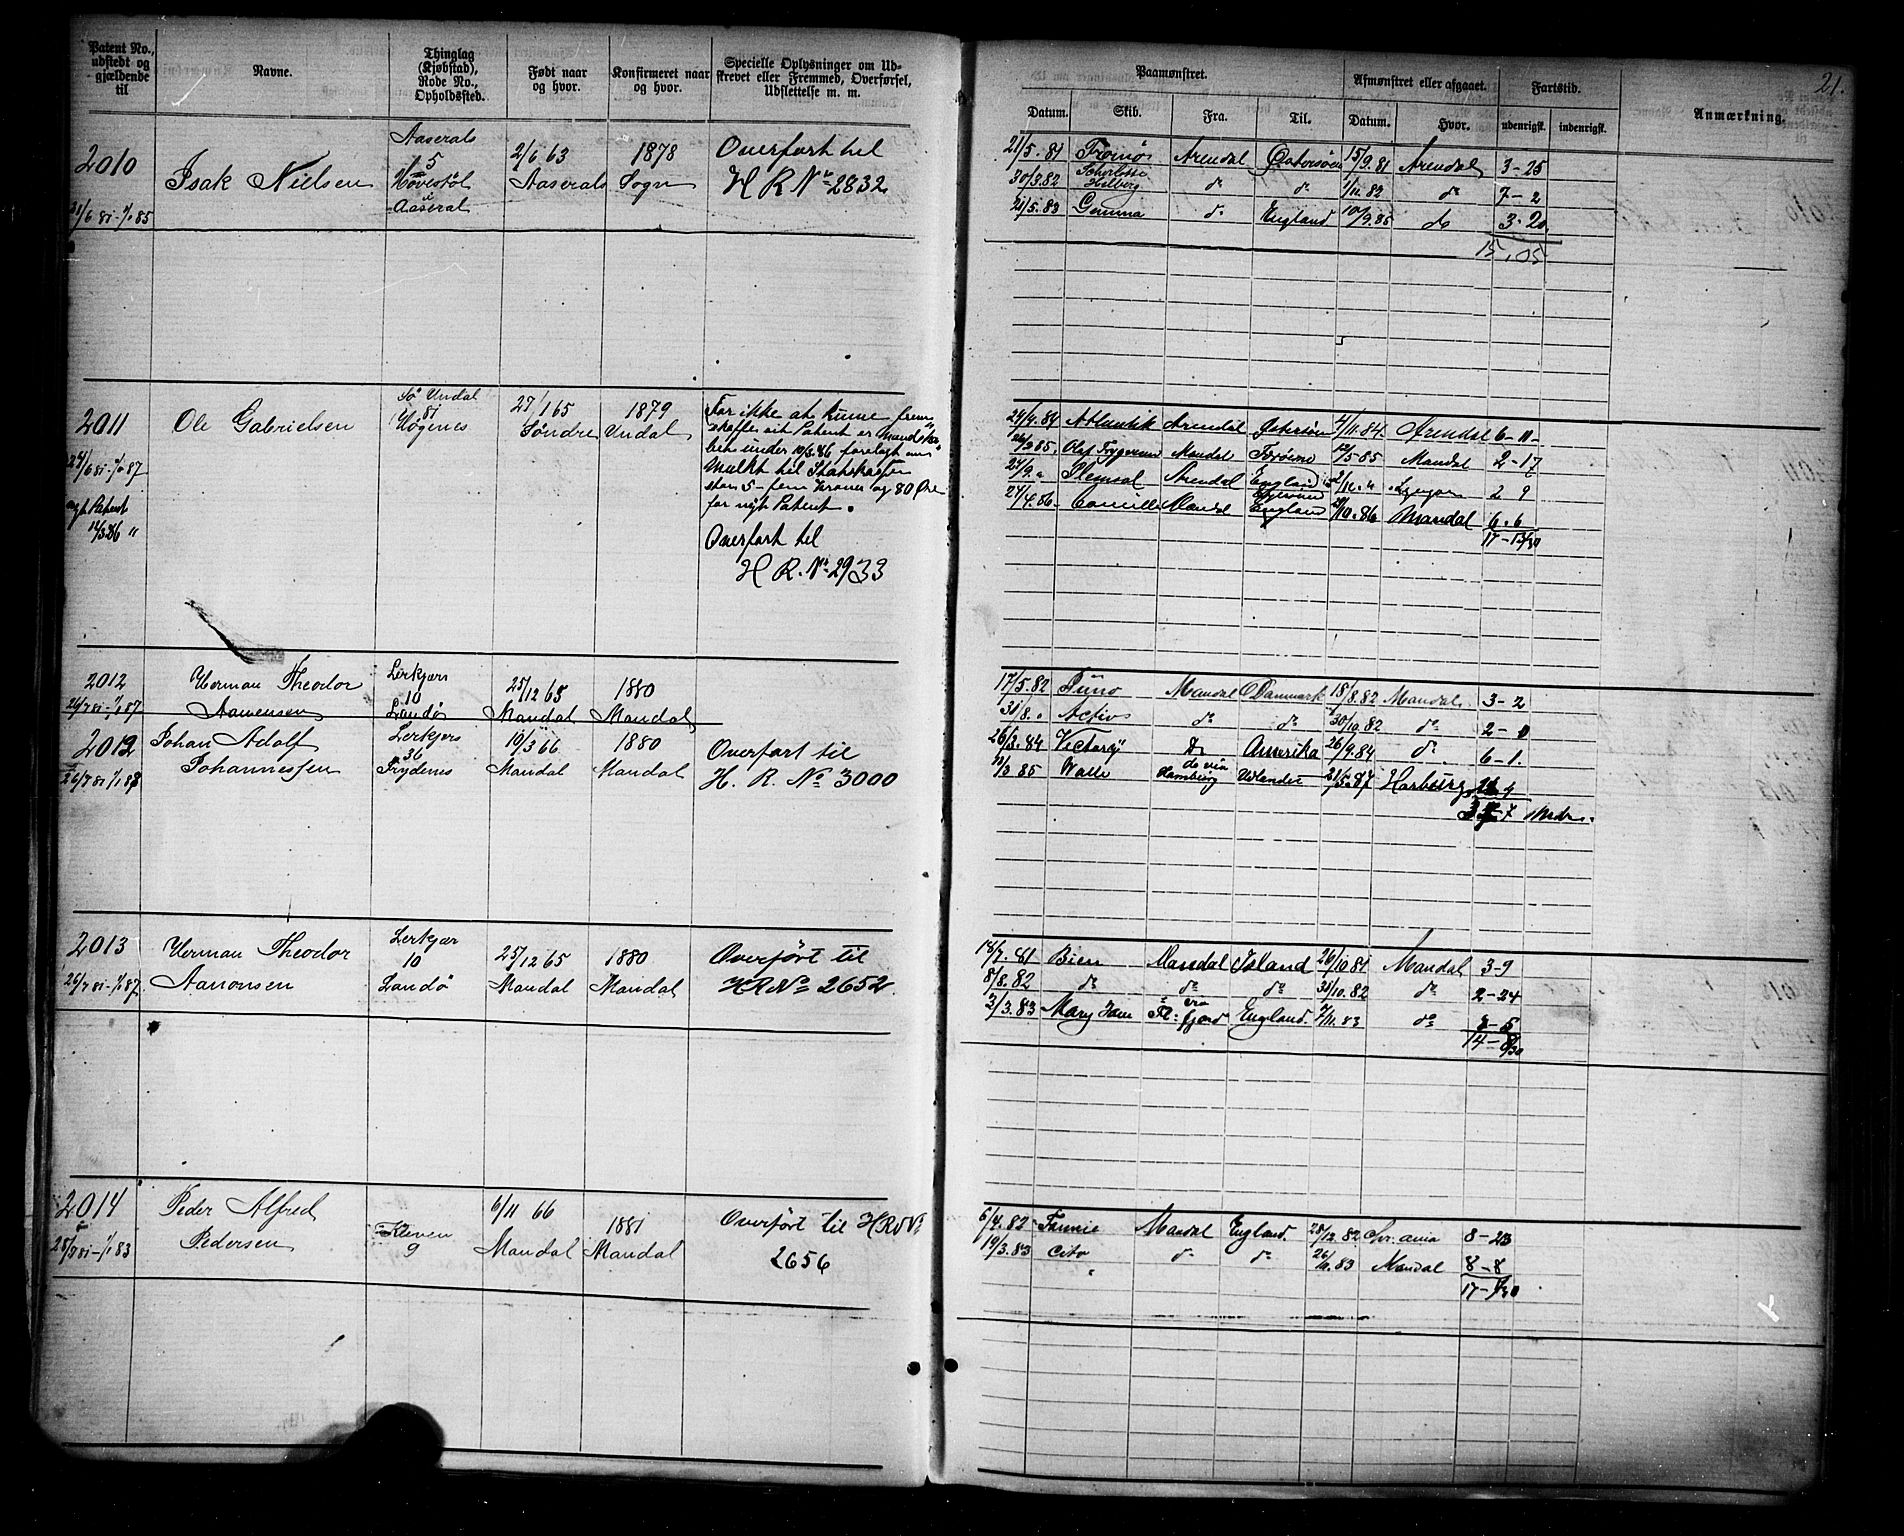 21.
Patent No., udstedt og gjældende til
Navne.
Thinglag (Kjøbstad), Rode No., Opholdssted.
Født naar og hvor.
Konfirmeret naar og hvor.
Specielle Oplysninger om Udskrevet eller Fremmed, Overførsel, Udslettelse m. m.
Paamønstret.
Afmønstret eller afgaaet.
Fartstid.
Anmærkning.
Datum. Skib. Fra. Til. Datum. Hvor. udenrigsk. indenrigsk.
2010
31/6 81-1/1 85
Isak Nielsen
Aaserals
5
Høvestøl
i Aaseral
2/6 63
Aaserals
1878
Sogn
Overført til
H R No 2832
21/5.81 Arendal 15/9.81 Arendal 3-25
30/3.82 Helberg do do 1/11.82 do 7-2
21/5.83 Gemma do England 10/9.85 do 3-20
15.05
2011
24/6 81-1/1 87
nyt Patent
12/3 86 "
Ole Gabrielsen
Sø Undal
81
Høgenes
27/1 65
Søndre
1879
Undal
For ikke at kunne frem
skaffe sit Patent er Mandskabets
under 10/3.86 forelagt en
Mulkt til Statskassen
stor 5- fem Kroner og 80 Øre
for nyt Patent.
Overført til
H R. No 2933
24/4.84 Atlantik Arendal Østersøen 4/11.84 Arendal 6-11-
26/2 85. Olaf Trygveson Mandal 12/5-85 Mandal 2-17
24/9 " Arendal England 2/11. " 2 9
24/4.86. Camilla Mandal England 29/10.86 Mandal 6.6
17-13/30
2012
26/7 81-1/1 87
Herman Theodor
Aanensen
Lerkjærs
10
Landø
25/12 65
Mandal
1880
Mandal
2012
26/7 81 1/1 88
Johan Adolf
Johannessen
Lerkjers
36
Frydenes
19/3 66
Mandal
1880
Mandal
Overført til
H. R. No 3000
17/5.82 Juno Mandal Danmark 18/8.82 Mandal. 3-2
31/8. " Activ do do 30/10.82 do 2-0
26/3.84 Victory Do Amerika 26/9.84 do 6-1.
13/3 85 Valle do via Hamburg Udlandet 21/5.87 Harburg
7 Mdr.
2013
26/7 81-1/1 87
Herman Theodor
Aanonsen
Lerkjær
10
Landø
25/12 65
Mandal
1880
Mandal
Overført til
HR No 2652
18/7.81 Bien Mandal Island 26/10.81 Mandal 3-9
8/8.82 do do do 31/10.82 do 2-24
2/3.83 Mary Jane via Fl.fjord England. 7/11.83 do 8-5
14-8/30
2014
25/7 81-1/1 83
Peder Alfred
Pedersen
Kleven
9
6/11 66
Mandal
1881
Mandal
Overført til HR No
2656
6/4.82 Fannie Mandal England. 28/12.82 Chr.ania 8-23
19/3.83 Cito do do 26/11.83 Mandal 8-8
17-1/30